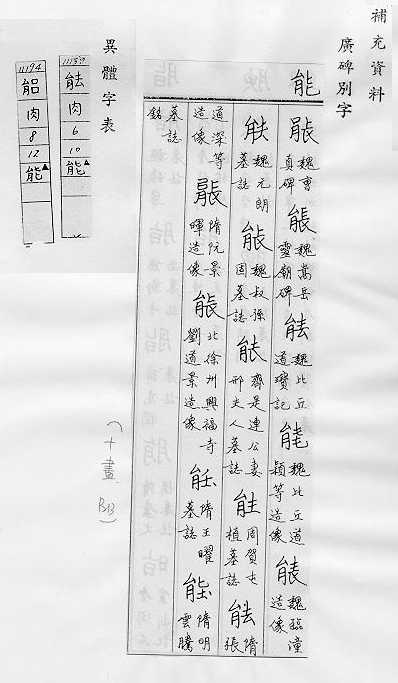 補充資料
廣碑別字
能
魏曹真碑
魏嵩岳靈廟碑
魏比丘道瓊記
魏比丘道穎等造像
魏臨潼造像
魏元朗墓誌
魏叔孫固墓誌
齊是連公妻邢夫人墓誌
周賀屯植墓誌
隋張
道深等造像
隋阮景暉造像
北徐州興福寺劉道景造像
隋王曜墓誌
隋明雲騰
墓誌銘
異體字表
11139
肉
6
10
能▲
11194
肉
8
12
能▲
(十畫 B13)